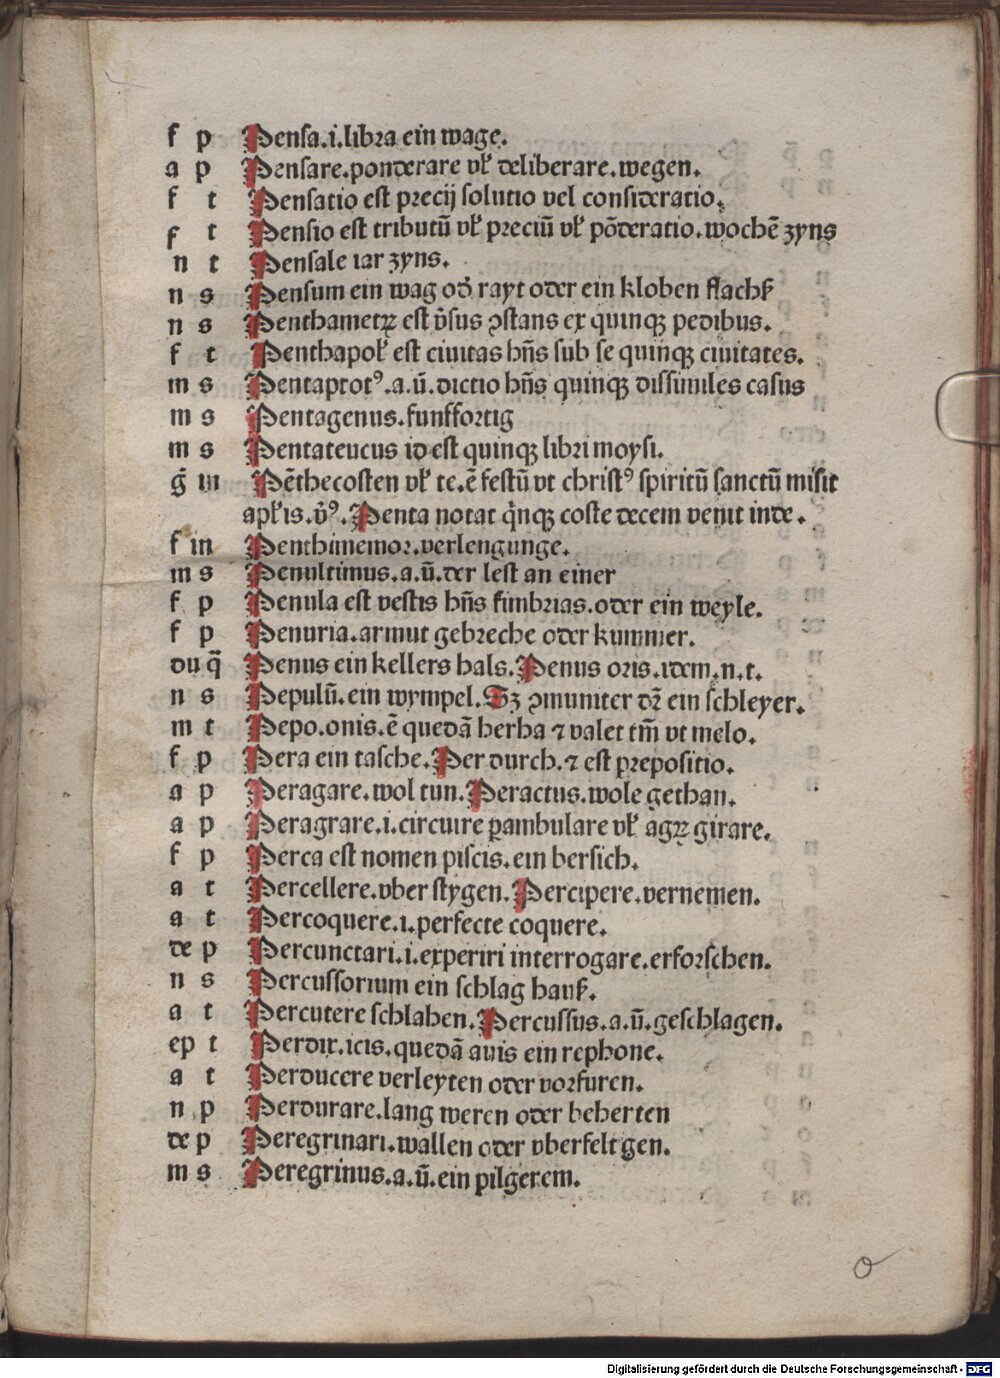 f p Pensa.i.libra ein wage.
a p Pensare.ponderare vł deliberare.wegen.
f t Pensatio est precij solutio vel consideratio.
f t Pensio est tributū vł preciū vł pōderatio.wochē zyns
n t Pensale iar zyns.
n s Pensum ein wag od̄ rayt oder ein kloben flachß
n s Penthametꝝ est v̄sus ꝯstans ex quinqꝫ pedibus.
f t Penthapoł est ciuitas hn̄s sub se quinqꝫ ciuitates.
m s Pentaptotꝰ.a.ū.dictio hn̄s quinqꝫ dissimiles casus
m s Pentagenus.funffortig
m s Pentateucus id est quinqꝫ libri moysi.
ḡ m Pēthecosten vł te.ē festū vt christꝰ spiritū sanctū misit
apłis.v̄ꝰ.Penta notat q̄nqꝫ coste decem venit inde.
f in Penthimemor.verlengunge.
m s Penultimus.a.ū.der lest an einer
f p Penula est vestis hn̄s fimbrias.oder ein weyle.
f p Penuria.armut gebreche oder kummer.
du q̄ Penus ein kellers hals.Penus oris.idem.n.t.
n s Pepulū.ein wympel.Sꝫ ꝯmuniter dr̄ ein schleyer.
m t Pepo.onis.ē quedā herba ⁊ valet tm̄ vt melo.
f p Pera ein tasche.Per durch.⁊ est prepositio.
a p Peragare.wol tun.Peractus.wole gethan.
a p Peragrare.i.circuire ꝑambulare vł agꝝ girare.
f p Perca est nomen piscis.ein bersich.
a t Percellere.vber stygen.Percipere.vernemen.
a t Percoquere.i.perfecte coquere.
de p Percunctari.i.experiri interrogare.erforschen.
n s Percussorium ein schlag hauß.
a t Percutere schlahen.Percussus.a.ū.geschlagen.
ep t Perdix.icis.quedā auis ein rephone.
a t Perducere verleyten oder vorfuren.
n p Perdurare.lang weren oder beherten
de p Peregrinari.wallen oder vberfeltgen.
m s Peregrinus.a.ū.ein pilgerem.
o
Digitalisierung gefördert durch die Deutsche Forschungsgemeinschaft - DFG